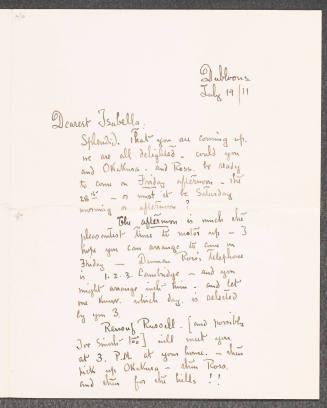 Dubloons
July 19/11
Dearest Isabella.
Splendid. That you are coming up.
we are all delighted. could you
and Okakura. and Ross. be ready
to come on Friday afternoon. the
28th - or must it be Saturday
morning or afternoon?
The afternoon is much the
pleasantest time to motor up - I
hope you can arrange to come on
Friday - Denman Ross's Telephone
is 1.2.3. Cambridge - and you
might arrange with him. and let
me know. which day. is selected
by you 3.
Renouf Russell. [and possibly
Joe Smith too] will meet you
at 3. P.M. at your home. - then
pick up Okakura - then Ross.
and then for the hills !!